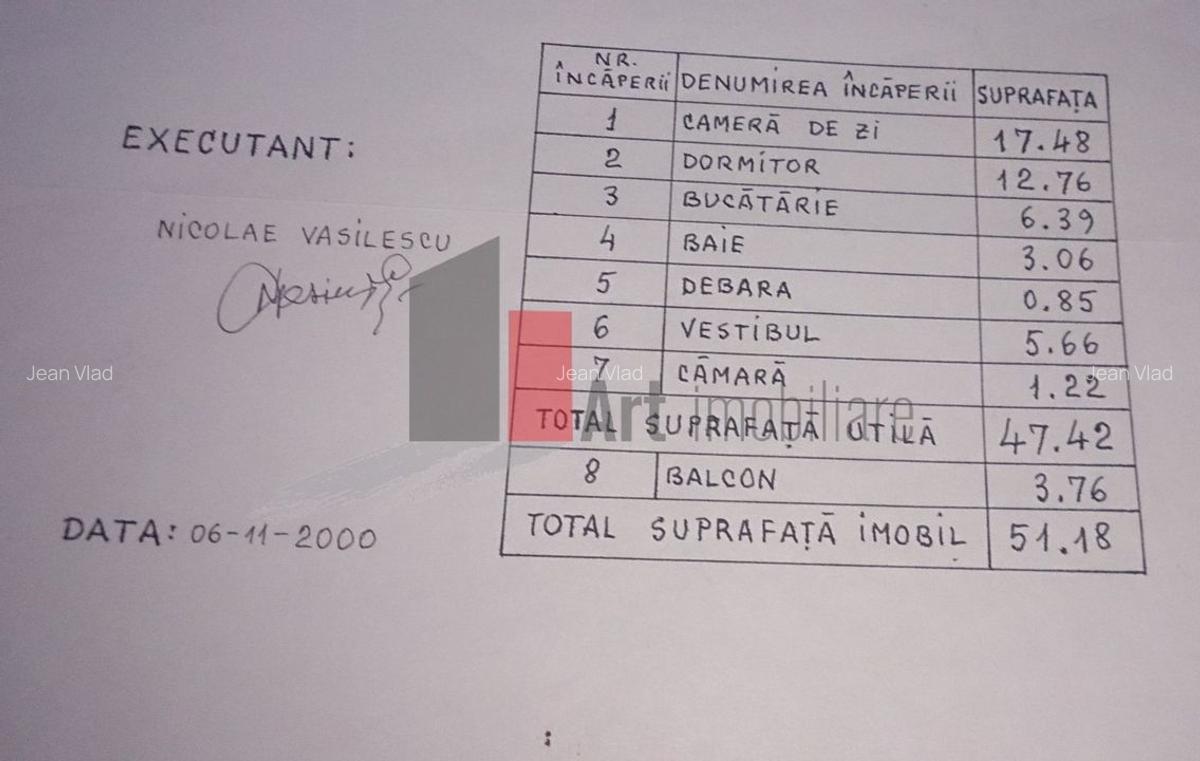 NR. ÎNCĂPERII DENUMIREA ÎNCĂPERII SUPRAFAȚA
1 CAMERĂ DE Zi 17.48
2 DORMITOR 12.76
3 BUCĂTĂRIE 6.39
4 BAIE 3.06
5 DEBARA 0.85
6 VESTIBUL 5.66
7 CĂMARĂ 1.22
TOTAL SUPRAFAȚĂ UTILĂ 47.42
8 BALCON 3.76
TOTAL SUPRAFAȚĂ IMOBIL 51.18
EXECUTANT:
NICOLAE VASILESCU
DATA: 06-11-2000
Art imobiliare
Jean Vlad
Jean Vlad
Jean Vlad